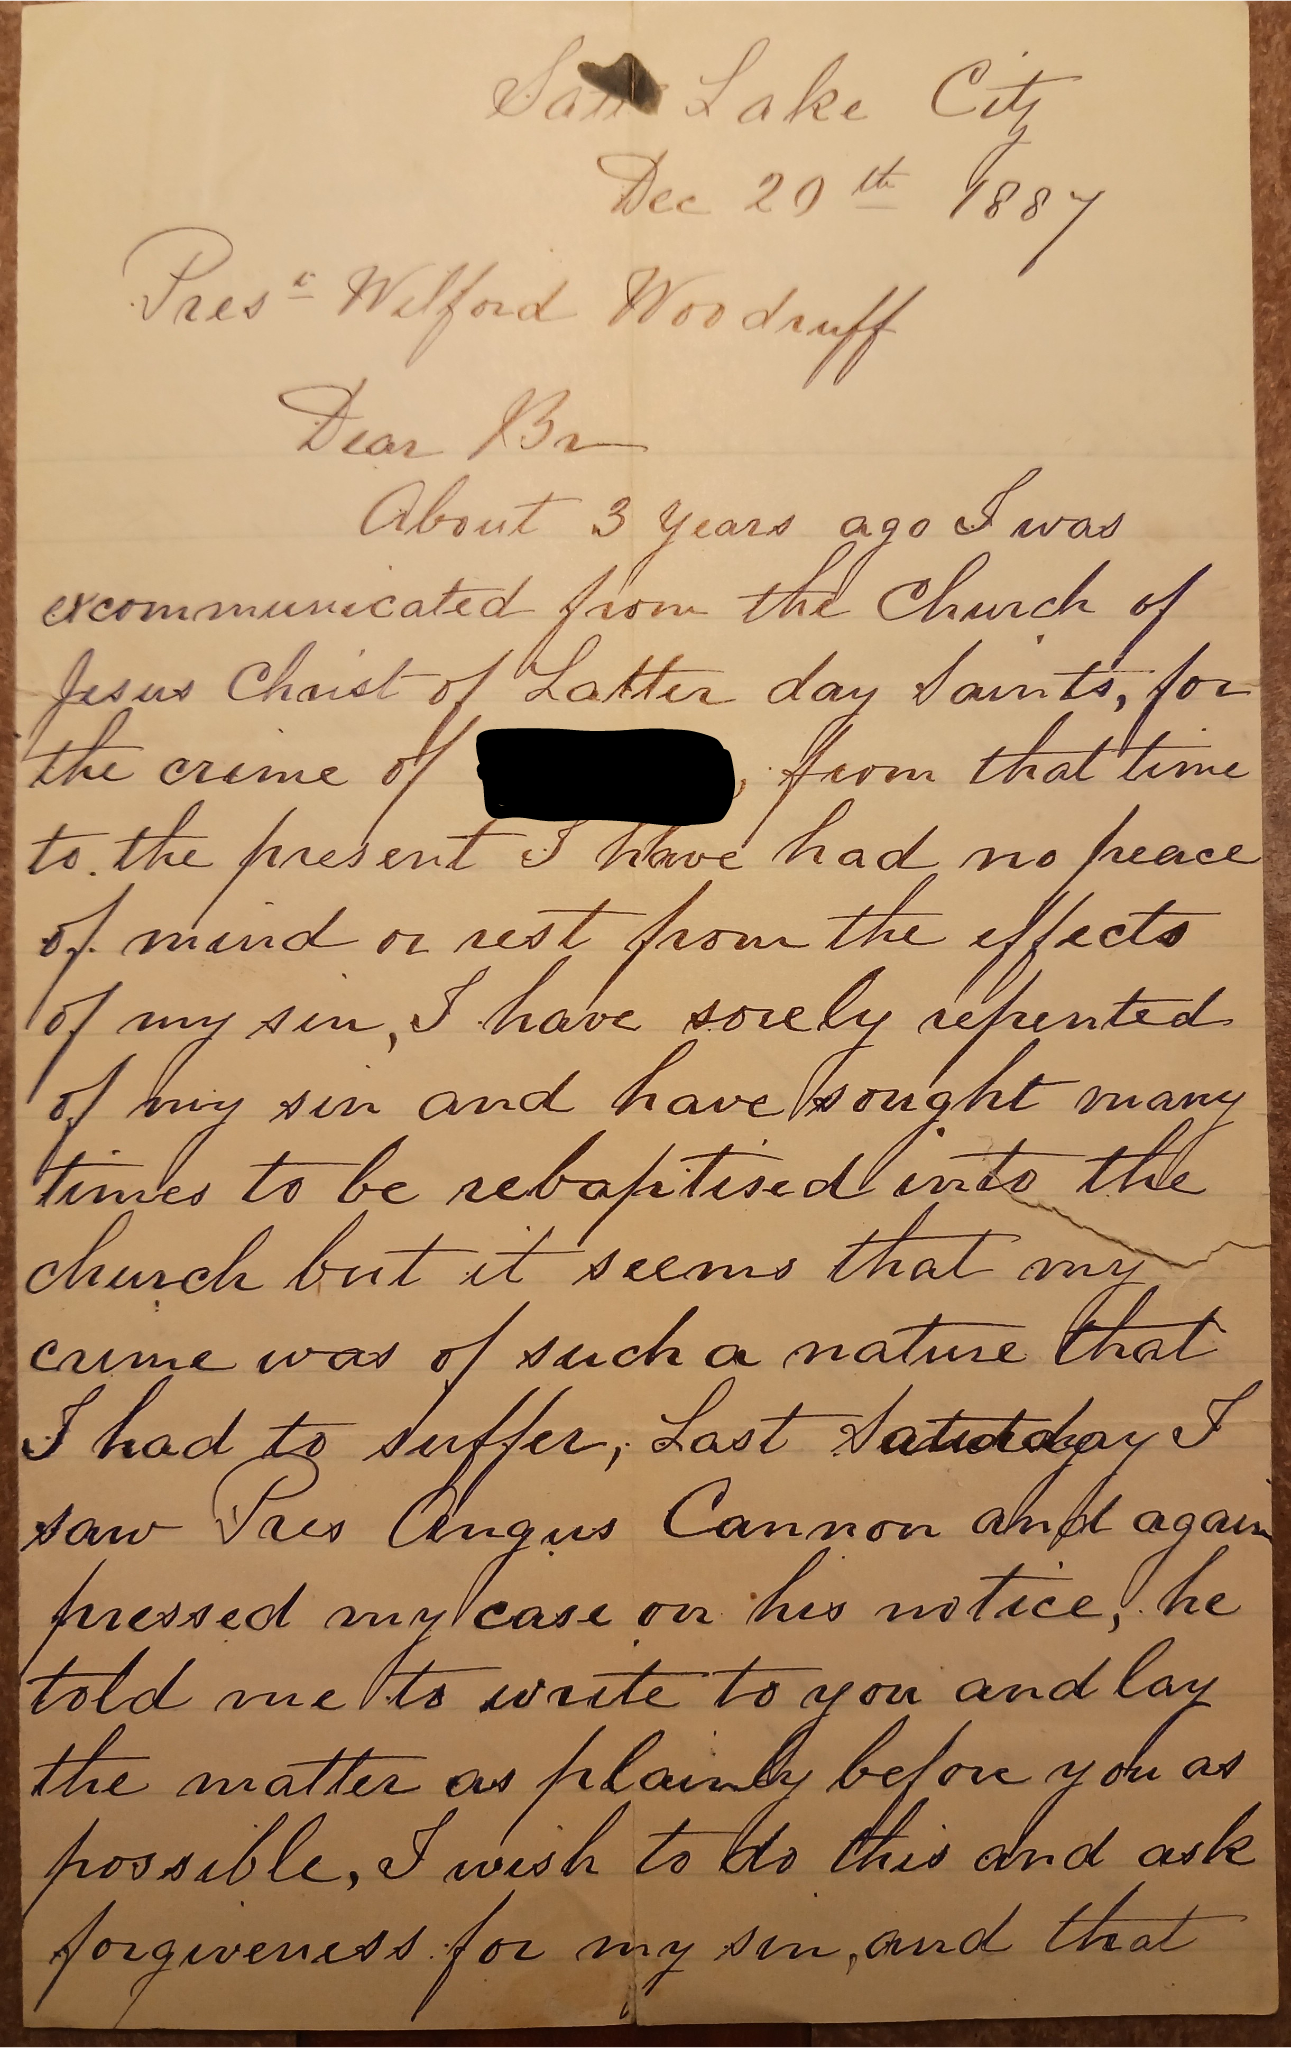 Salt Lake City
Dec 20th 1887
Prest Wilford Woodruff
Dear Br
About 3 years ago I was
excommunicated from the Church of
Jesus Christ of Latter day Saints, for
the crime of , from that time
to the present I have had no peace
of mind or rest from the effects
of my sin, I have sorely repented
of my sin and have sought many
times to be rebaptised into the
church but it seems that my
crime was of such a nature that
I had to suffer, Last Saturday I
saw Pres Angus Cannon and again
pressed my case on his notice, he
told me to write to you and lay
the matter as plainly before you as
possible, I wish to do this and ask
forgiveness for my sin, and that